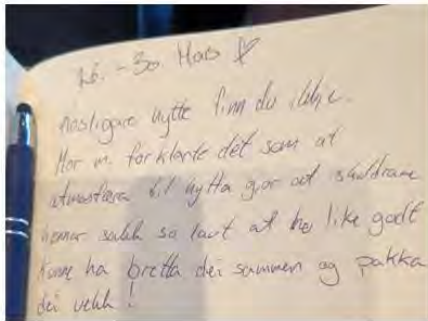 26. - 30. Mars
nosligare hytte finn du ikkje.
Mor m. forklarte det som at
atmosfæra til hytta gjør at skuldrane
hennar sakk så lavt at ho like godt
kunne ha bretta dei sammen og pakka
dei vekk!